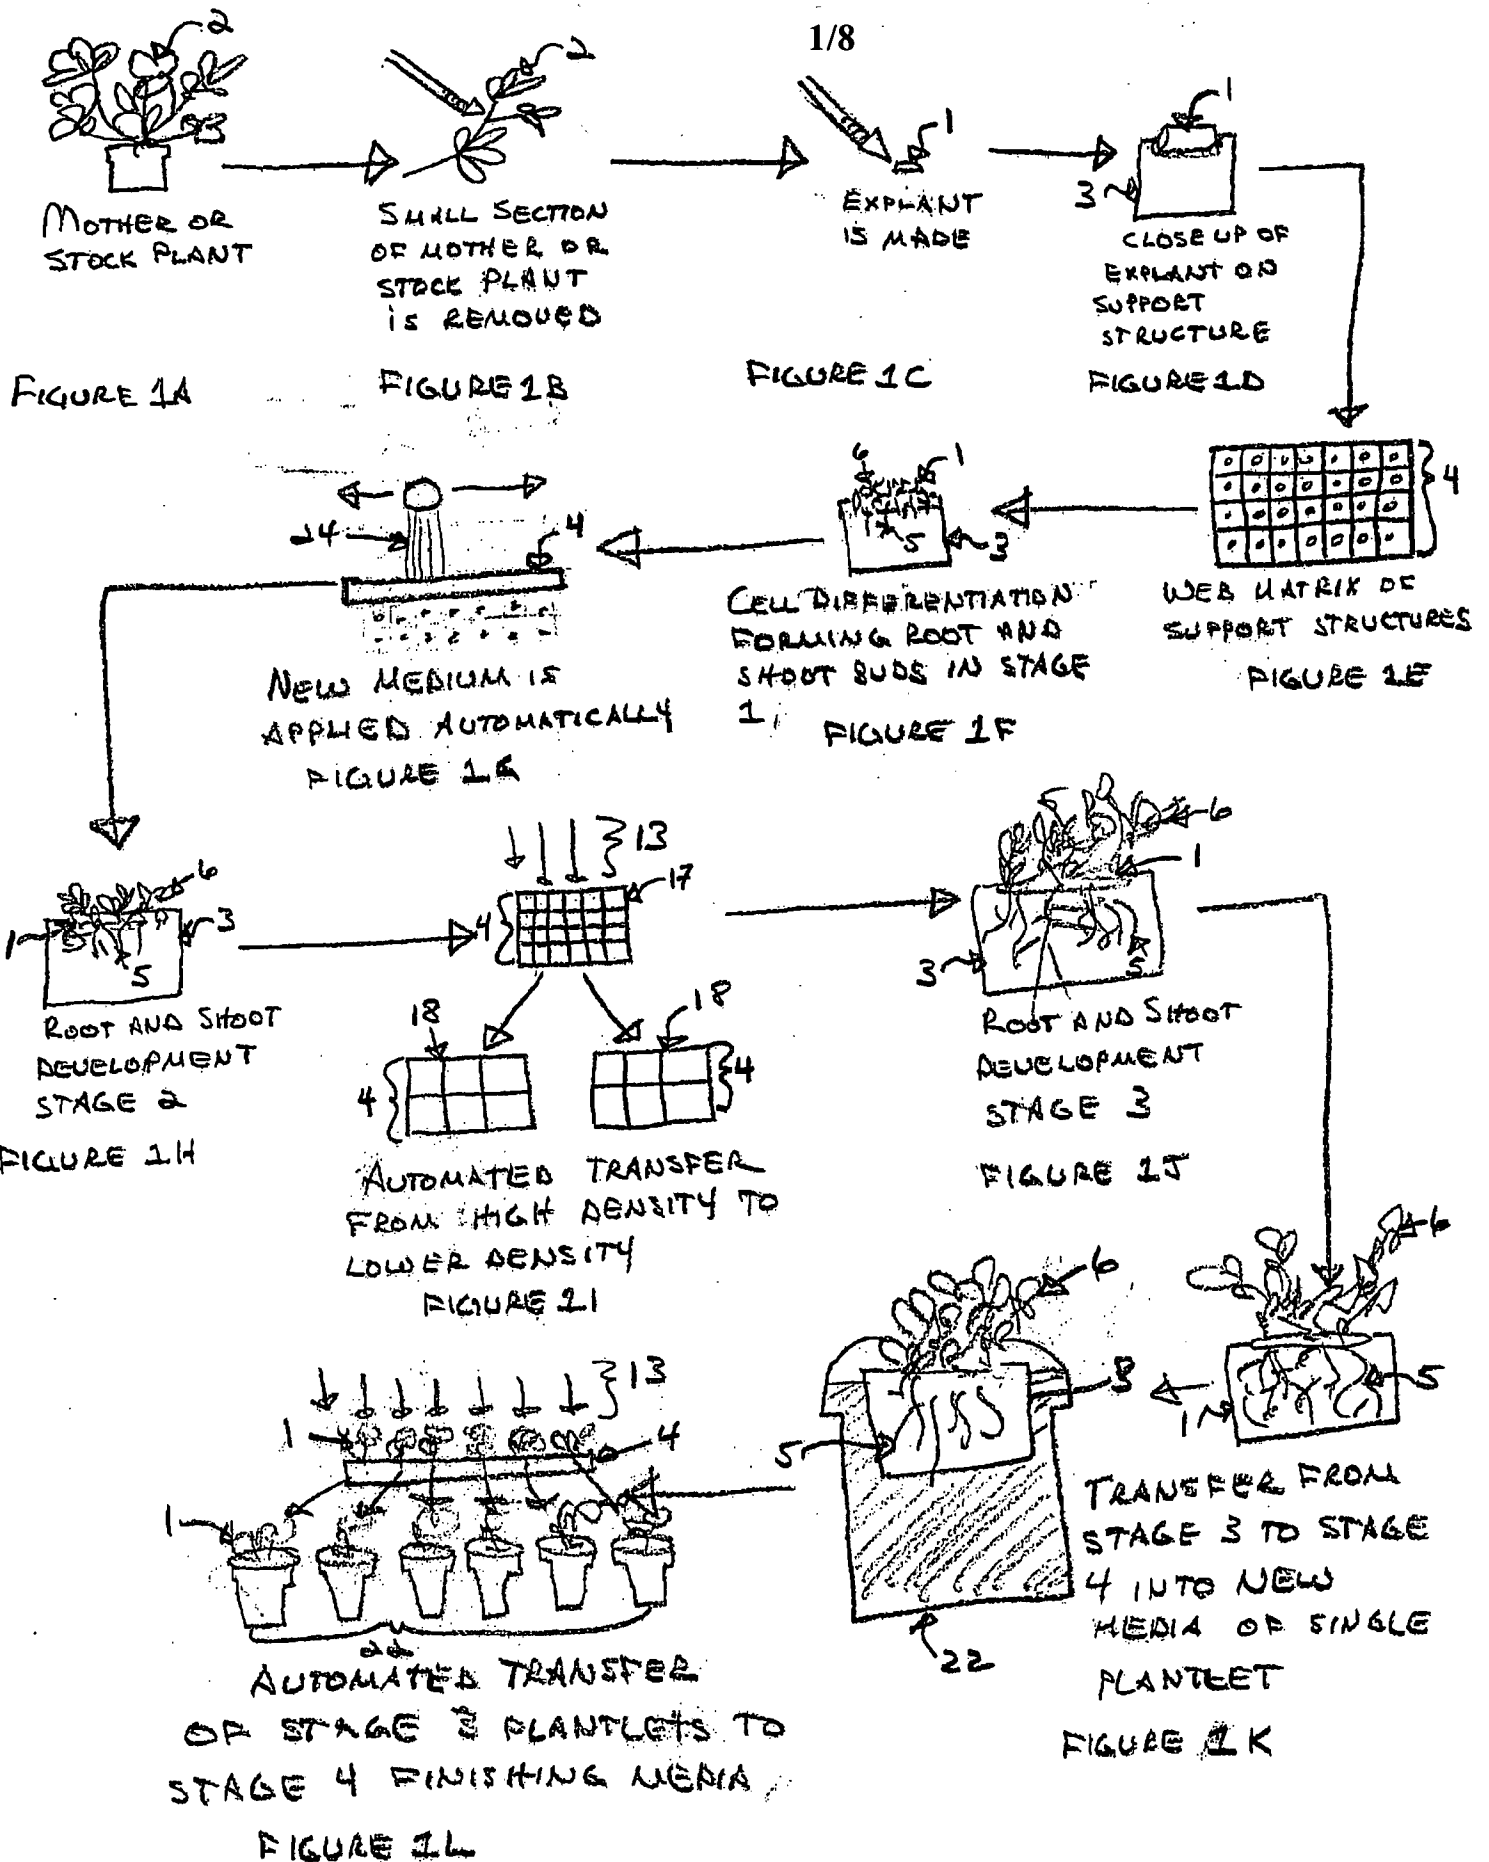 1/8
2
2
1
1
3
MOTHER OR
STOCK PLANT
FIGURE 1A
SMALL SECTION
OF MOTHER OR
STOCK PLANT
is REMOVED
FIGURE 1B
EXPLANT
IS MADE
FIGURE 1C
CLOSE UP OF
EXPLANT ON
SUPPORT
STRUCTURE
FIGURE 1D
4
WEB MATRIX OF
SUPPORT STRUCTURES
FIGURE 1E
6
1
5
3
CELL DIFFERENTIATION
FORMING ROOT AND
SHOOT BUDS IN STAGE
1,
FIGURE 1F
24
4
NEW MEDIUM IS
APPLIED AUTOMATICALLY
FIGURE 1G
6
3
1
5
ROOT AND SHOOT
DEVELOPMENT
STAGE 2
FIGURE 1H
13
17
4
18
18
4
4
AUTOMATED TRANSFER
FROM HIGH DENSITY TO
LOWER DENSITY
FIGURE 1I
6
1
3
5
ROOT AND SHOOT
DEVELOPMENT
STAGE 3
FIGURE 1J
6
5
1
TRANSFER FROM
STAGE 3 TO STAGE
4 INTO NEW
MEDIA OF SINGLE
PLANTLET
FIGURE 1K
6
3
5
22
13
1
4
1
22
AUTOMATED TRANSFER
OF STAGE 3 PLANTLETS TO
STAGE 4 FINISHING MEDIA
FIGURE 1L